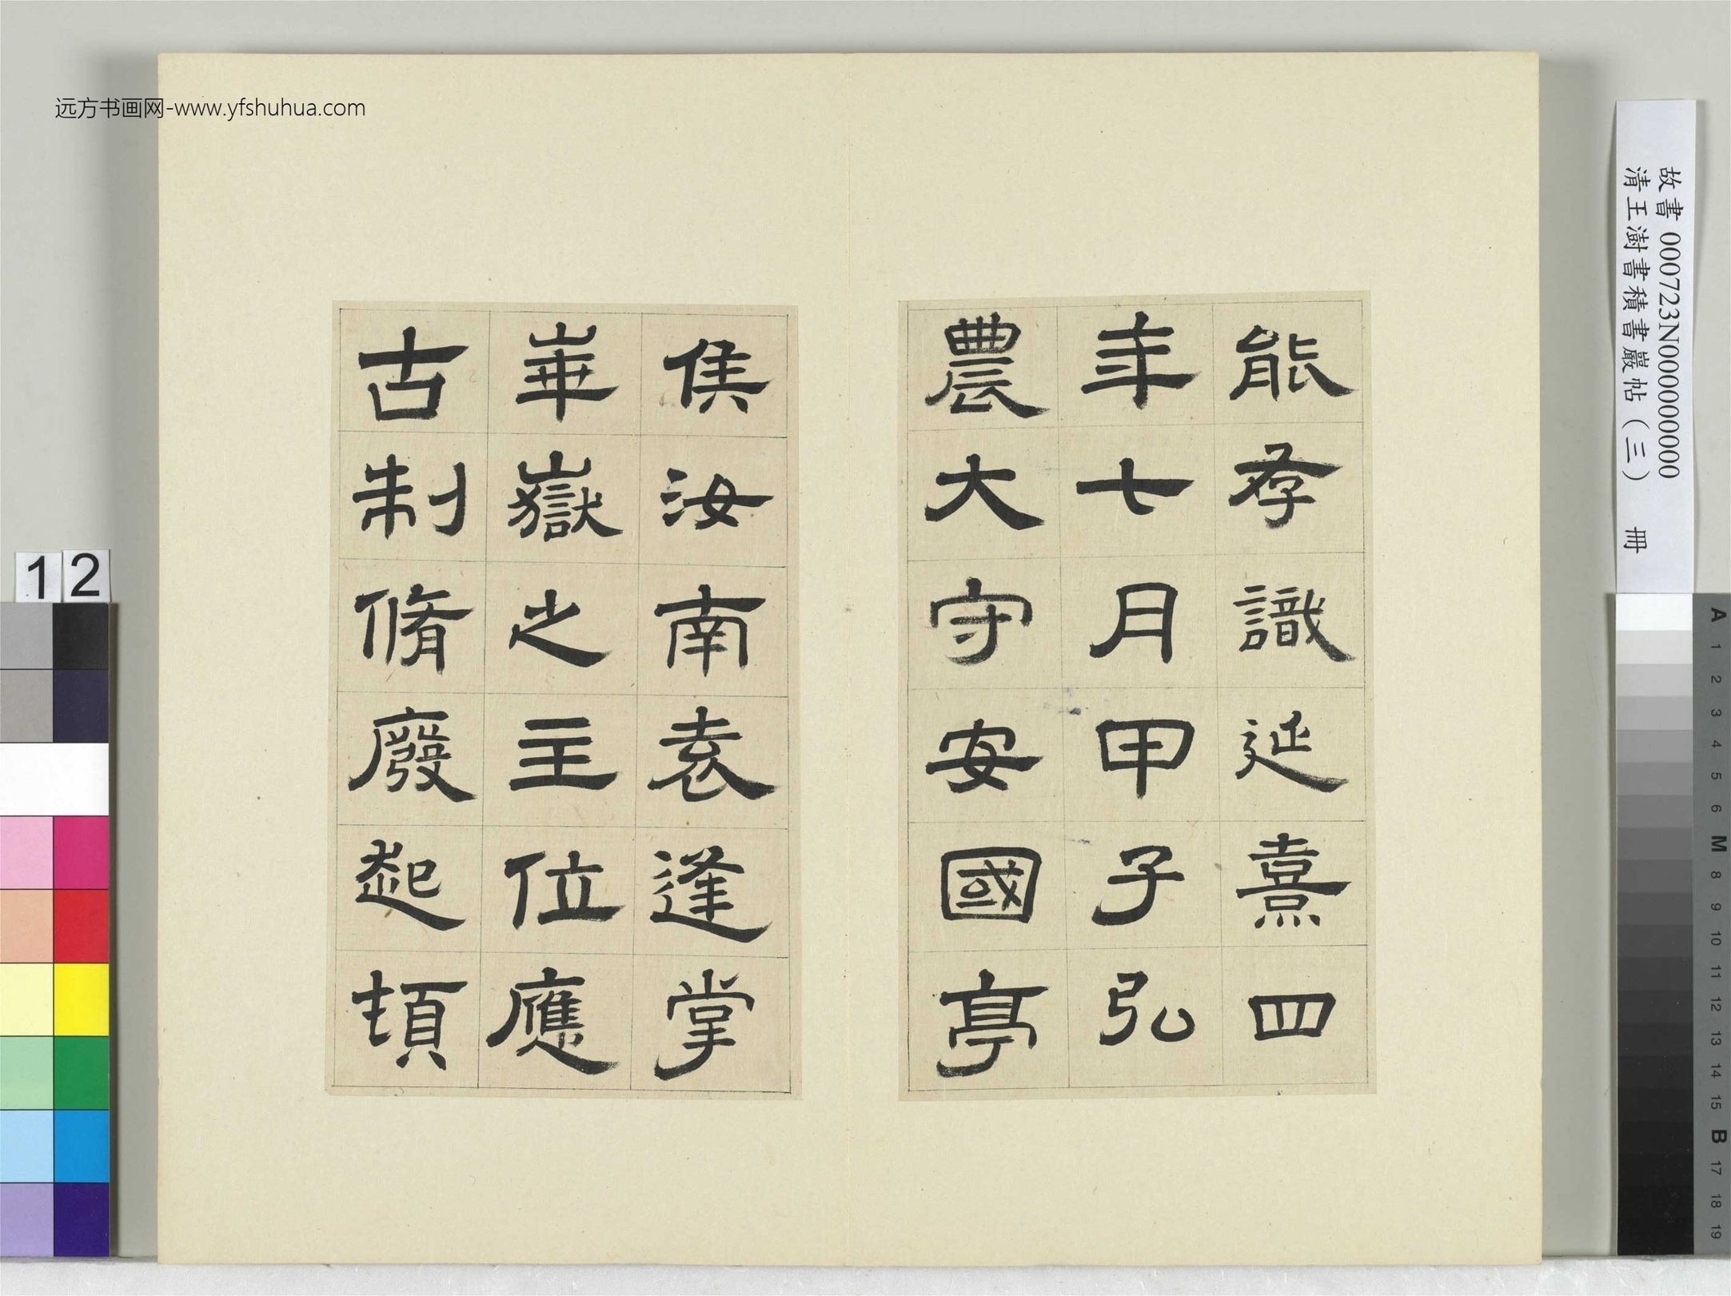 能存識延熹四
年七月甲子弘
農大守安國亭
侯汝南袁逢掌
崋嶽之主位應
古制脩廢起頓
远方书画网-www.yfshuhua.com
故書 000723N000000000
清王澍書積書巖帖(三) 冊
12
A 1 2 3 4 5 6 M 8 9 10 11 12 13 14 15 B 17 18 19